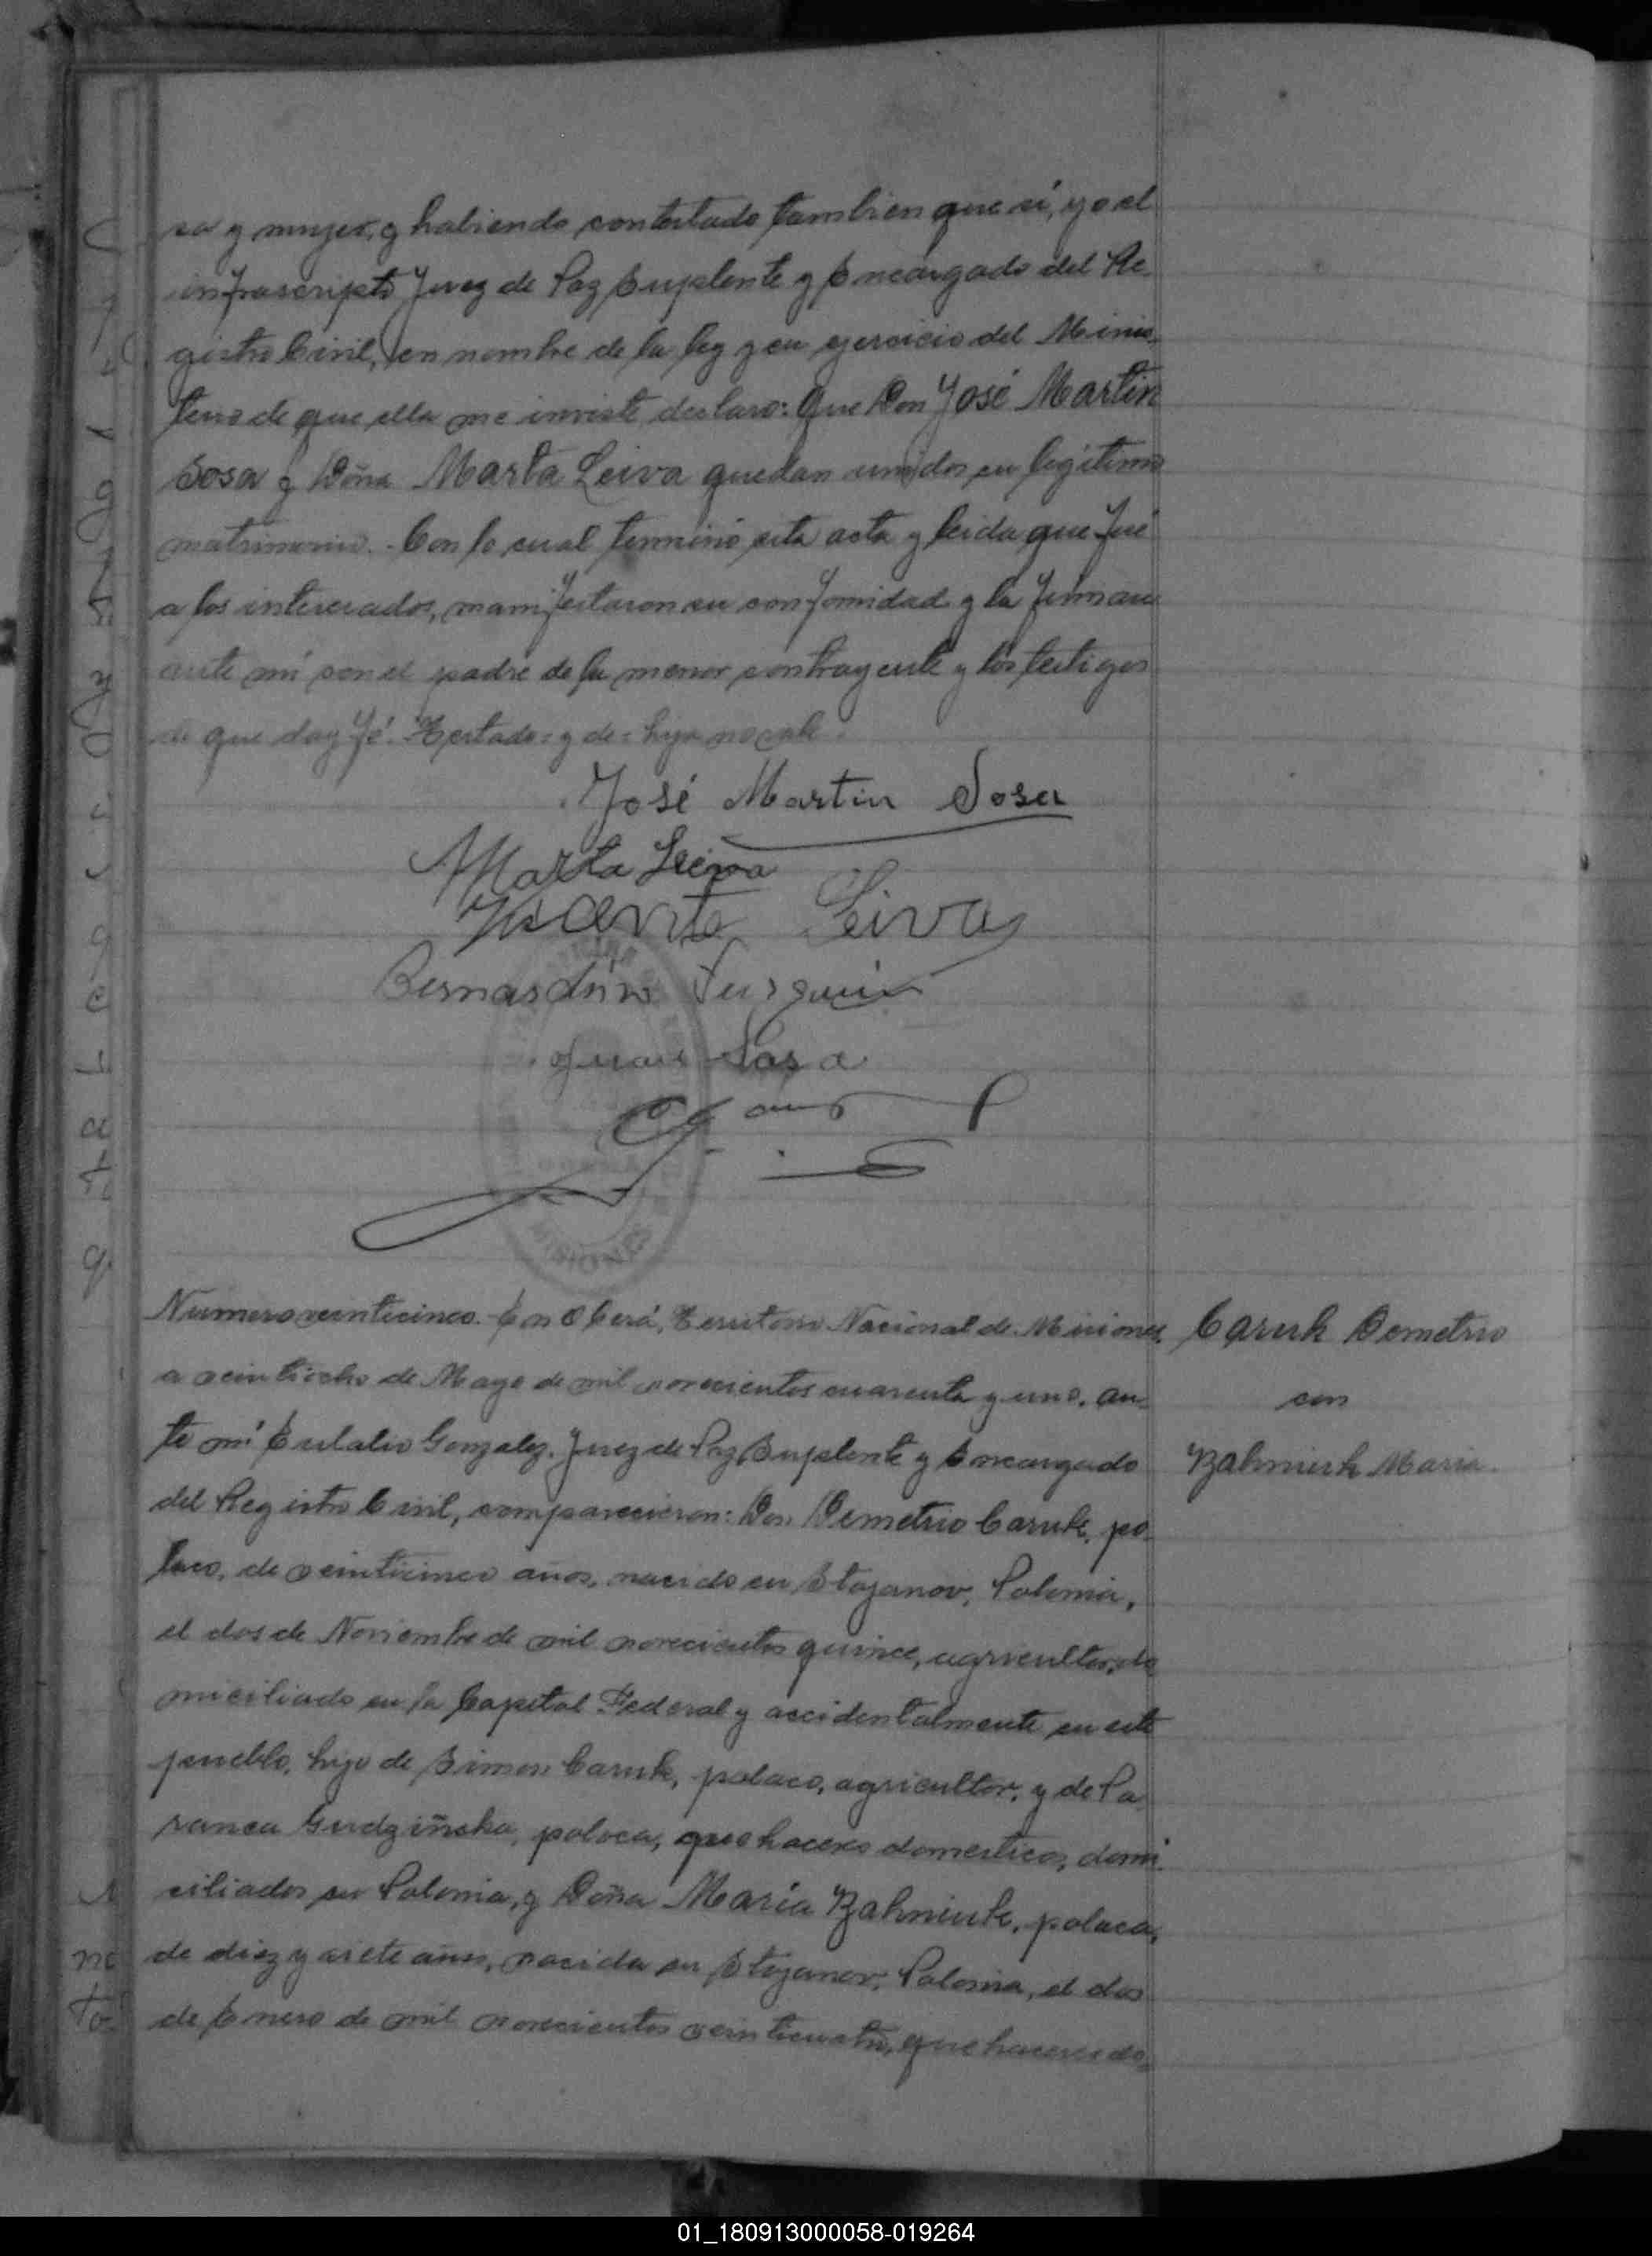 sa y mujer, y habiendo contestado tambien que sí, yo el
infrascripto Juez de Paz Suplente y Encargado del Re-
gistro Civil, en nombre de la ley y en ejercicio del Minis-
terio de que ella me inviste declaro: Que Don José Martin
Sosa y Doña Marta Leiva quedan unidos en legitimo
matrimonio.- Con lo cual terminó esta acta y leida que fué
a los interesados, manifestaron su conformidad y la firman
ante mí con el padre de la menor contrayente y los testigos
de que doy fé. Testado: y de= hija no vale.
José Martin Sosa
Marta Leiva
Vicente Leiva
Bernardino
Juan Sosa
MISIONES
Numero veinticinco. En Oberá, Territorio Nacional de Misiones,
a veintiocho de Mayo de mil novecientos cuarenta y uno, an-
te mí Eulalio Gonzalez, Juez de Paz Suplente y Encargado
del Registro Civil, comparecieron: Don Demetrio Caruk, po-
laco, de veinticinco años, nacido en Stojanov, Polonia,
el dos de Noviembre de mil novecientos quince, agricultor, do-
miciliado en la Capital Federal y accidentalmente en este
pueblo, hijo de Simon Caruk, polaco, agricultor, y de Pa-
ranca Gudziñska, polaca, quehaceres domesticos, domi-
ciliados en Polonia, y Doña María Bahniuk, polaca,
de diez y siete años, nacida en Stojanov, Polonia, el dos
de Enero de mil novecientos veinticuatro, quehaceres do-
Caruk Demetrio
con
Bahniuk Maria.
01_180913000058-019264